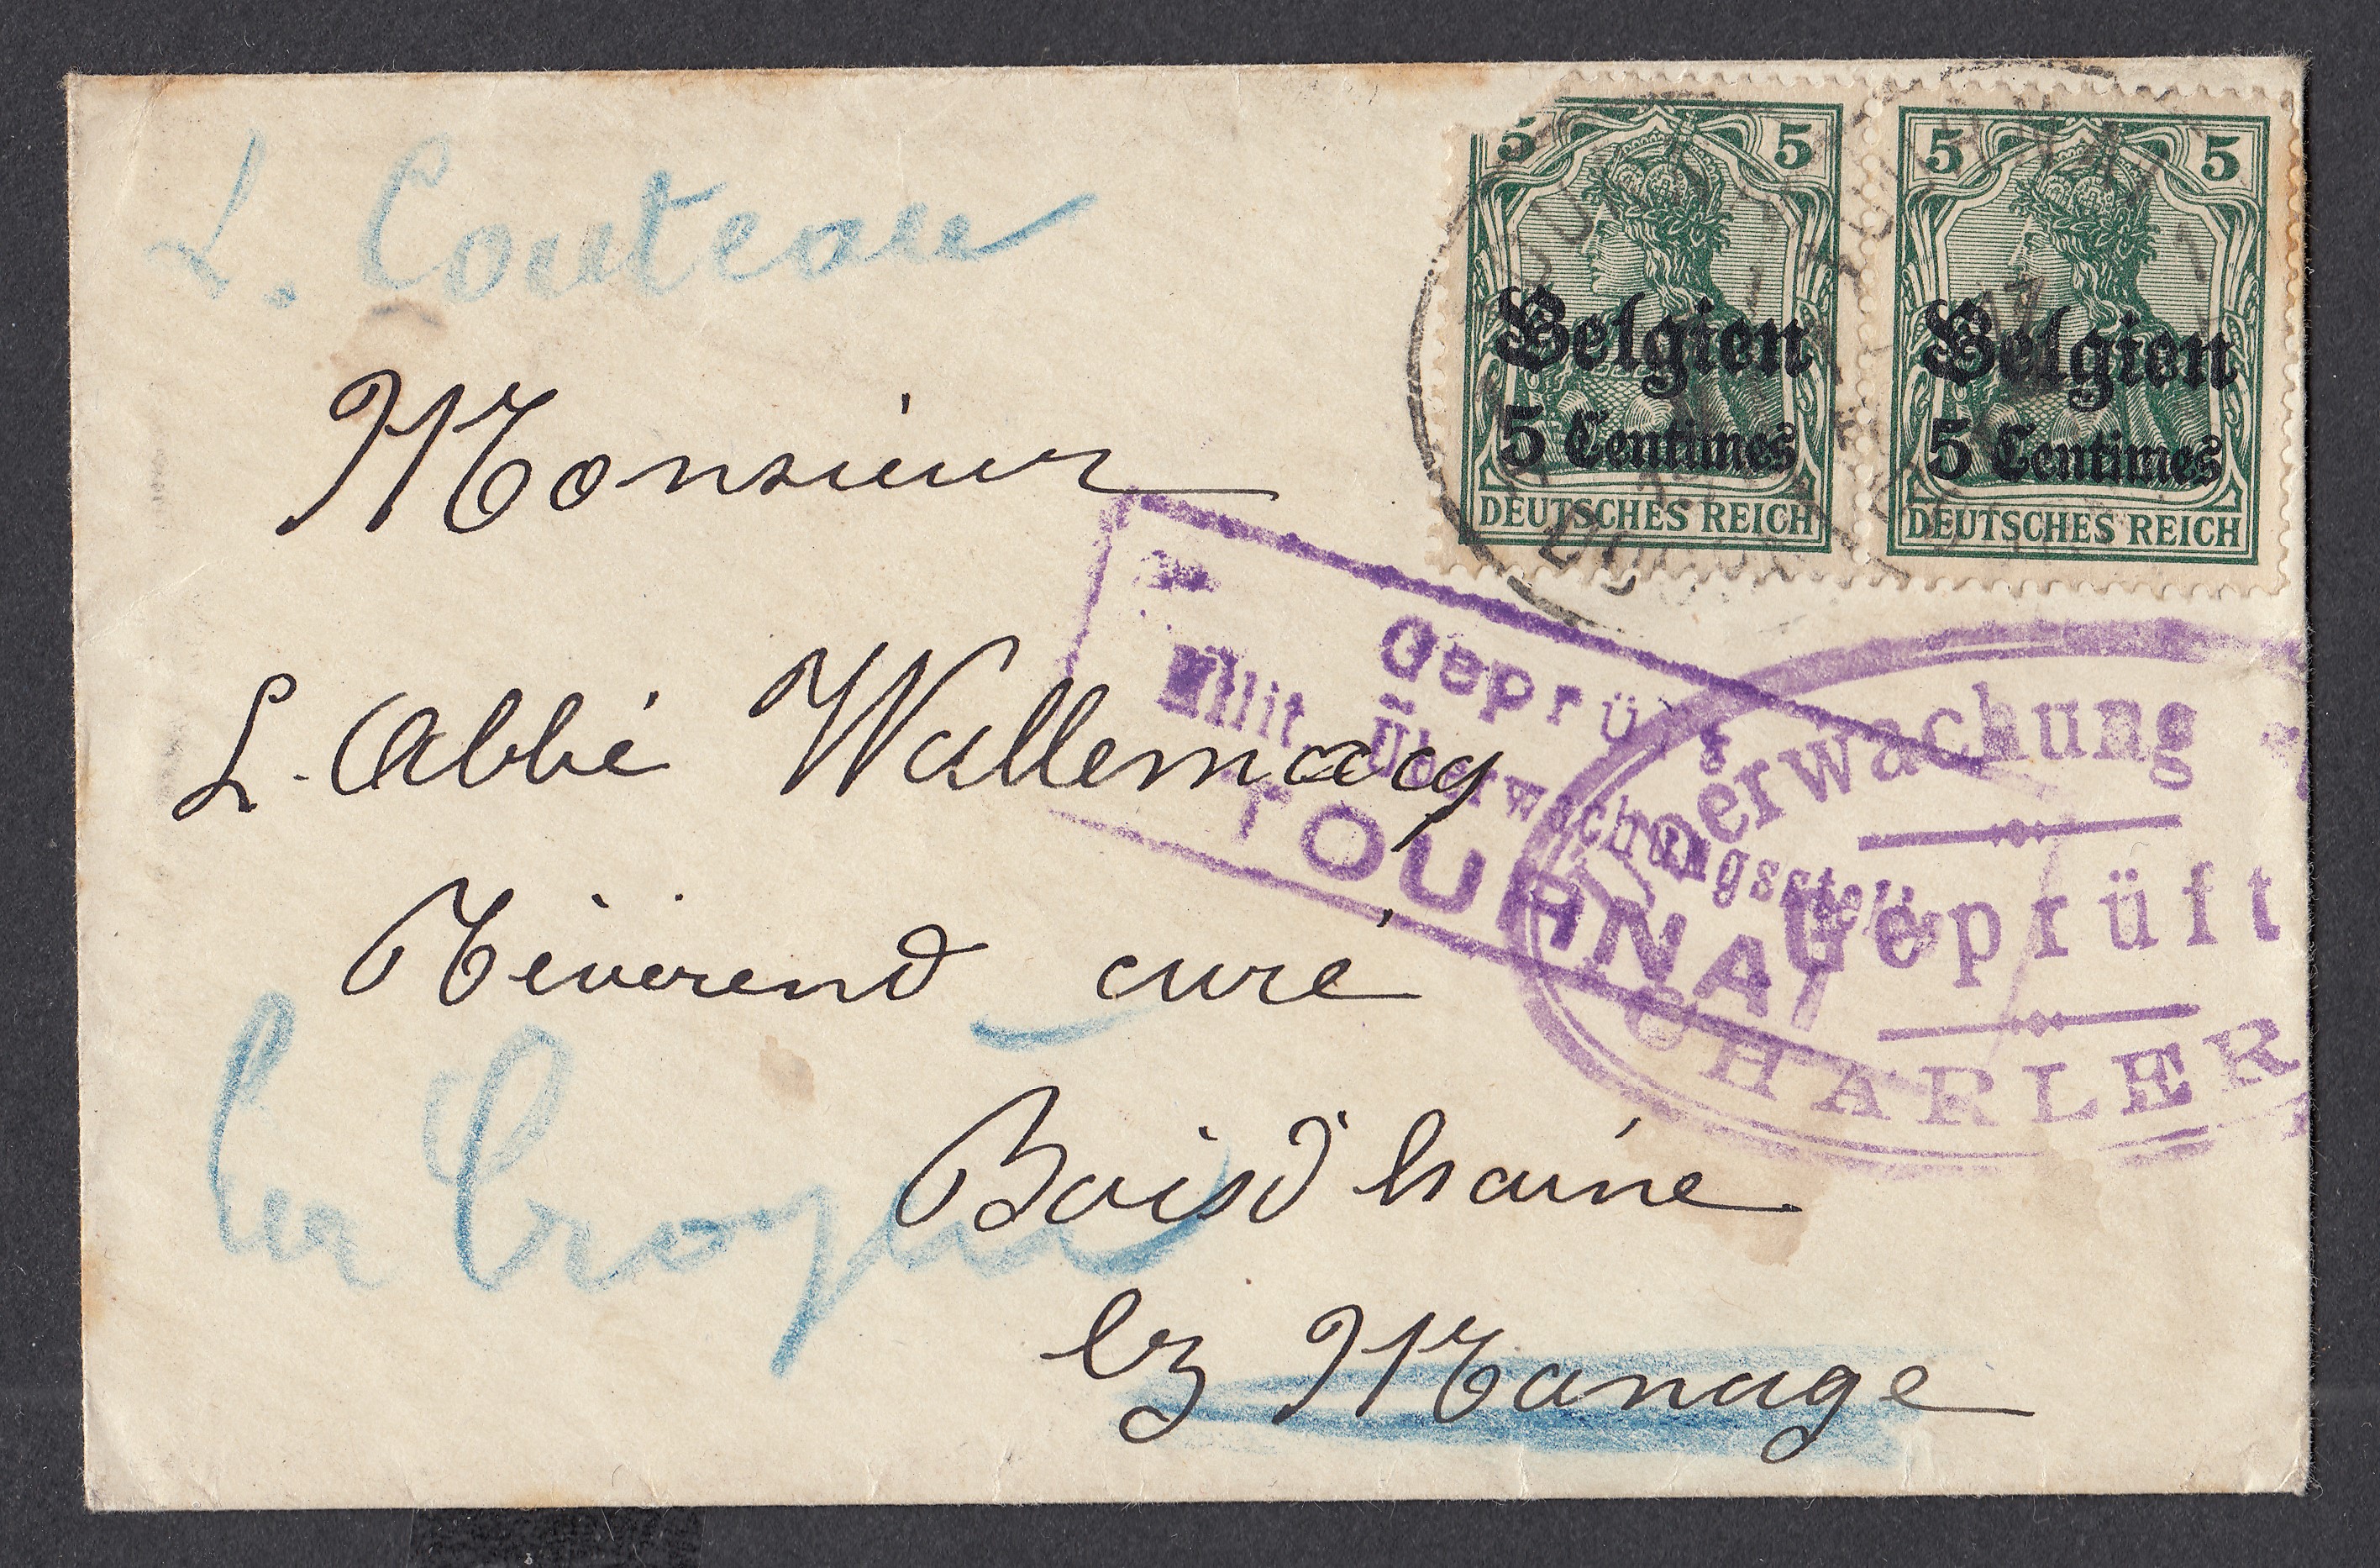 L. Couteau
5 5
Belgien
5 Centimes
DEUTSCHES REICH
5 5
Belgien
5 Centimes
DEUTSCHES REICH
Monsieur
Geprüft
Milit. Überwachungsstelle
TOURNAI
Überwachung
Geprüft
CHARLER
L. Abbé Wallemacq
Révérend curé
Boisd'haine
lez Manage